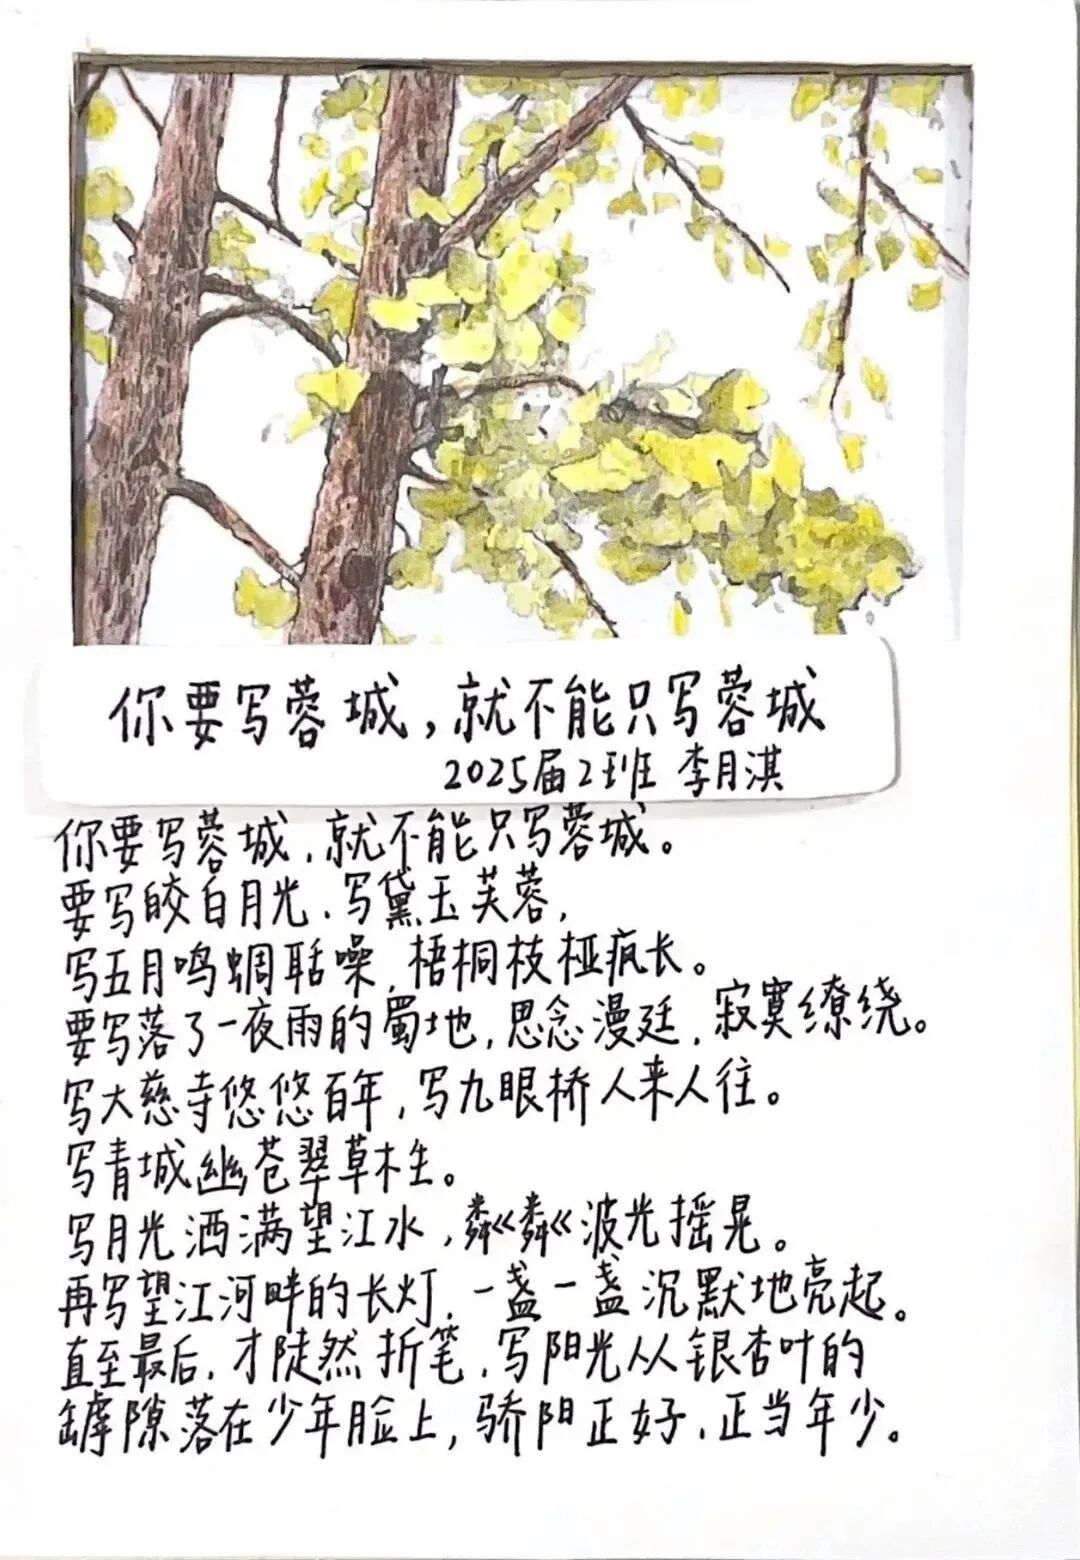 你要写蓉城，就不能只写蓉城
2025届2班 李月淇
你要写蓉城，就不能只写蓉城。
要写皎白月光，写黛玉芙蓉，
写五月鸣蜩聒噪，梧桐枝桠疯长。
要写落了一夜雨的蜀地，思念漫廷，寂寞缭绕。
写大慈寺悠悠百年，写九眼桥人来人往。
写青城幽苍翠草木生。
写月光洒满望江水，粼粼波光摇晃。
再写望江河畔的长灯，一盏一盏沉默地亮起。
直至最后，才陡然折笔，写阳光从银杏叶的
罅隙落在少年脸上，骄阳正好，正当年少。